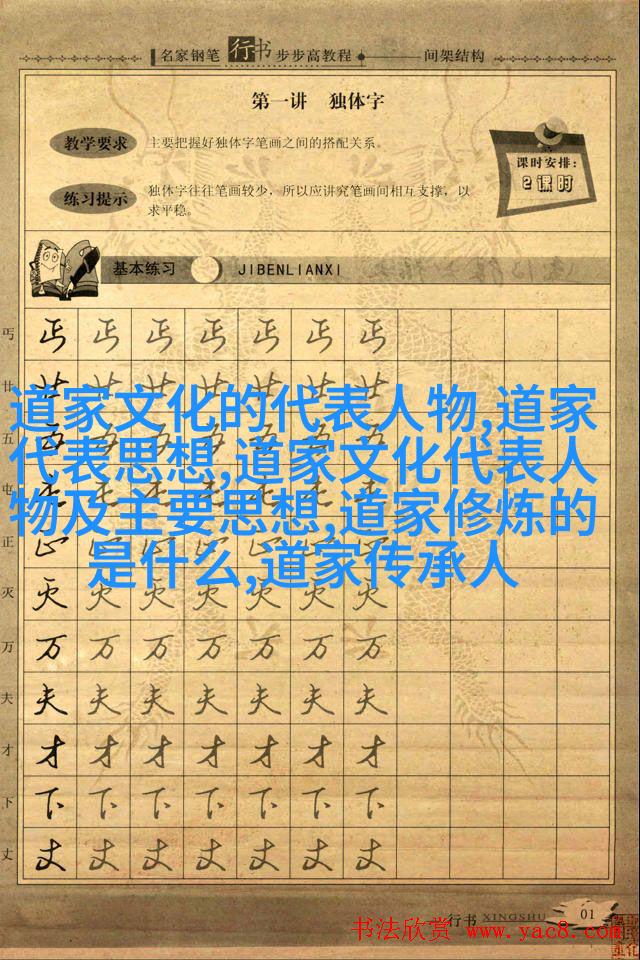 名家钢笔 行书 步步高教程 间架结构
第一讲 独体字
教学要求
主要把握好独体字笔画之间的搭配关系。
练习提示
独体字往往笔画较少，所以应讲究笔画间相互支撑，以
求平稳。
课时安排：
2课时
基本练习 JIBENLIANXI
丐 丐 丐 丐 丐 丐 丐 丐
廿 廿 廿 廿 廿 廿 廿 廿
道家文化的代表人物,道家
五 五 五 五 五 五 五 五
代表思想,道家文化代表人
屯 屯 屯 屯 屯 屯 屯 屯
物及主要思想,道家修炼的
正 正 正 正 正 正 正 正
是什么,道家传承人
灭 灭 灭 灭 灭 灭 灭 灭
万 万 万 万 万 万 万 万
夫 夫 夫 夫 夫 夫 夫 夫
才 才 才 才 才 才 才 才
下 下 下 下 下 下 下 下
丈 丈 丈 丈 丈 丈 丈 丈
行书 XINGSHU 01
书法欣赏 www.yac8.com